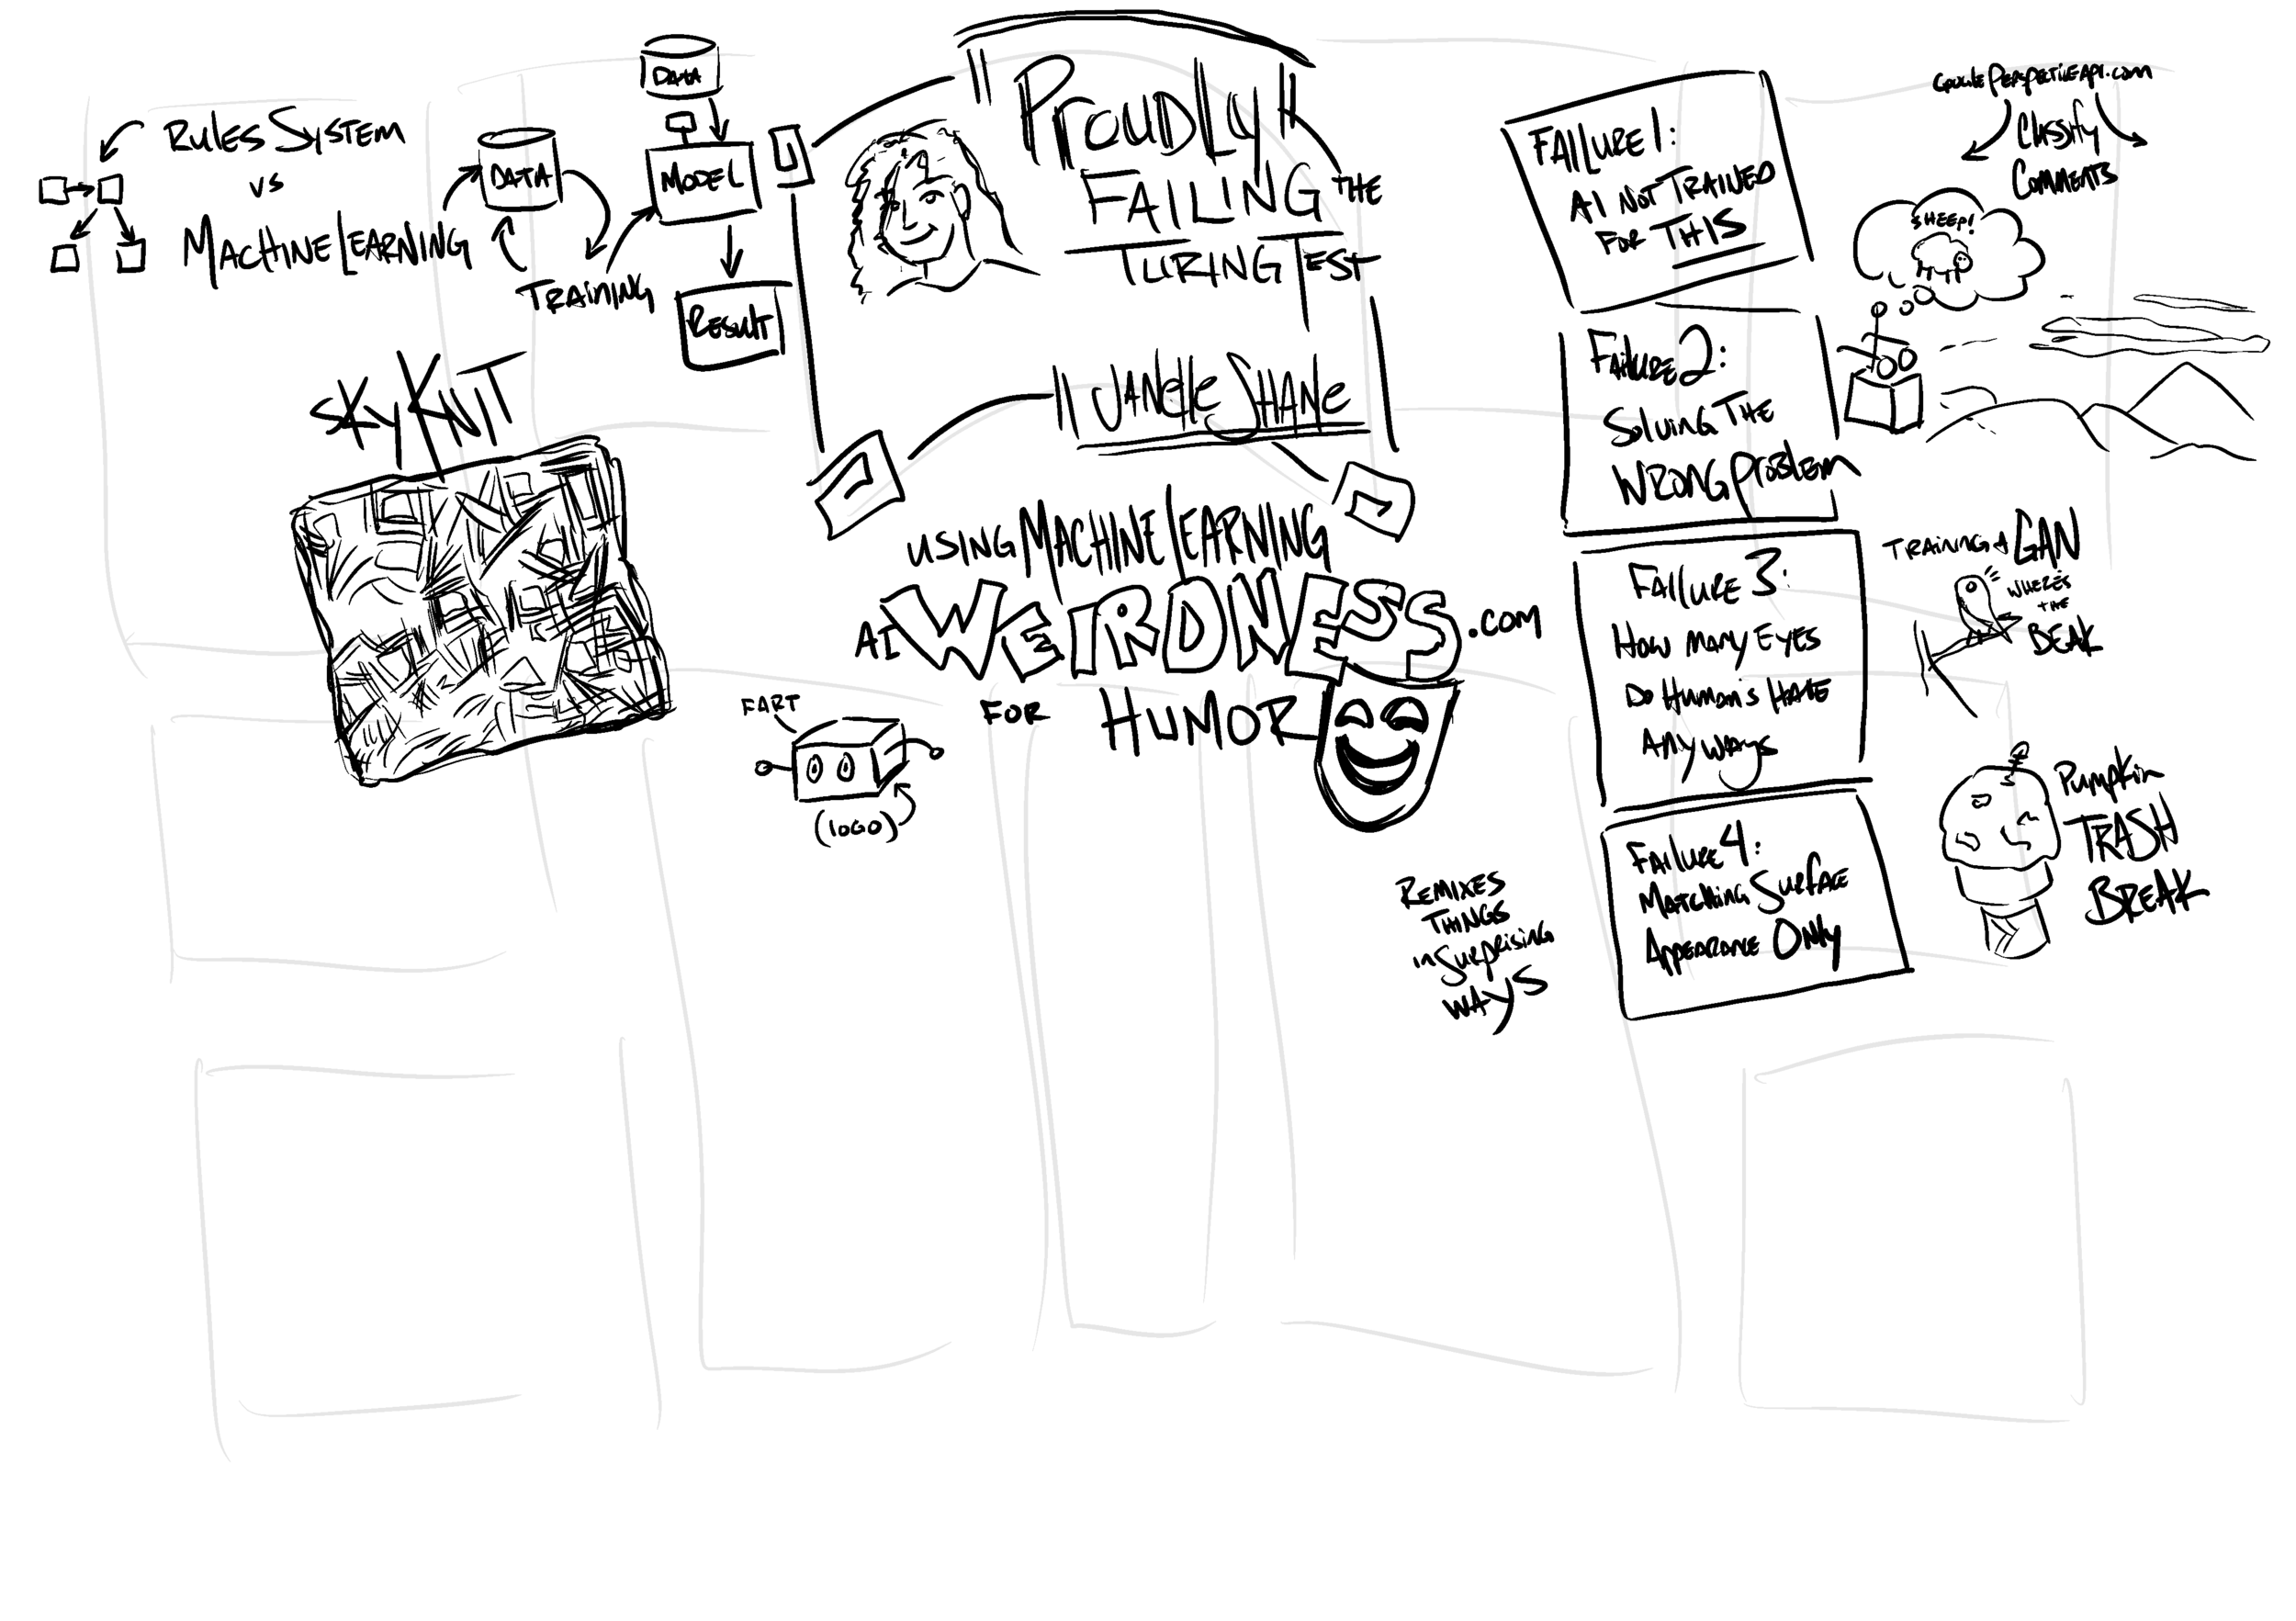 Rules System
vs
Machine Learning
Data
Training
Data
Model
Result
SkyKnit
"Proudly"
Failing the
Turing Test
Janelle Shane
using Machine Learning
AI Weirdness.com
for Humor
Fart
(logo)
Remixes
Things
in Surprising
ways
Failure 1:
AI Not Trained
for This
Failure 2:
Solving The
Wrong Problem
Failure 3:
How many Eyes
Do Human's Have
Anyways
Failure 4:
Matching Surface
Appearance Only
Google PerspectiveApi.com
Classify
Comments
Sheep!
Training a GAN
Where's
the
Beak
Pumpkin
Trash
Break